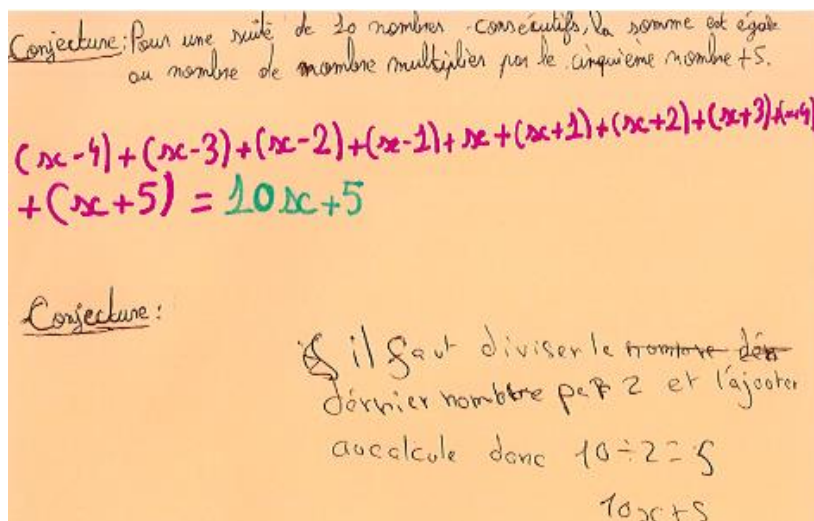 Conjecture : Pour une suite de 10 nombres consécutifs, la somme est égale
au nombre de nombre multiplier par le cinquième nombre +5.
(x-4)+(x-3)+(x-2)+(x-1)+x+(x+1)+(x+2)+(x+3)+(x+4)
+(x+5) = 10x+5
Conjecture :
il faut diviser le nombre dér
dérnier nombre par 2 et l'ajouter
au calcule donc 10÷2=5
10x+5